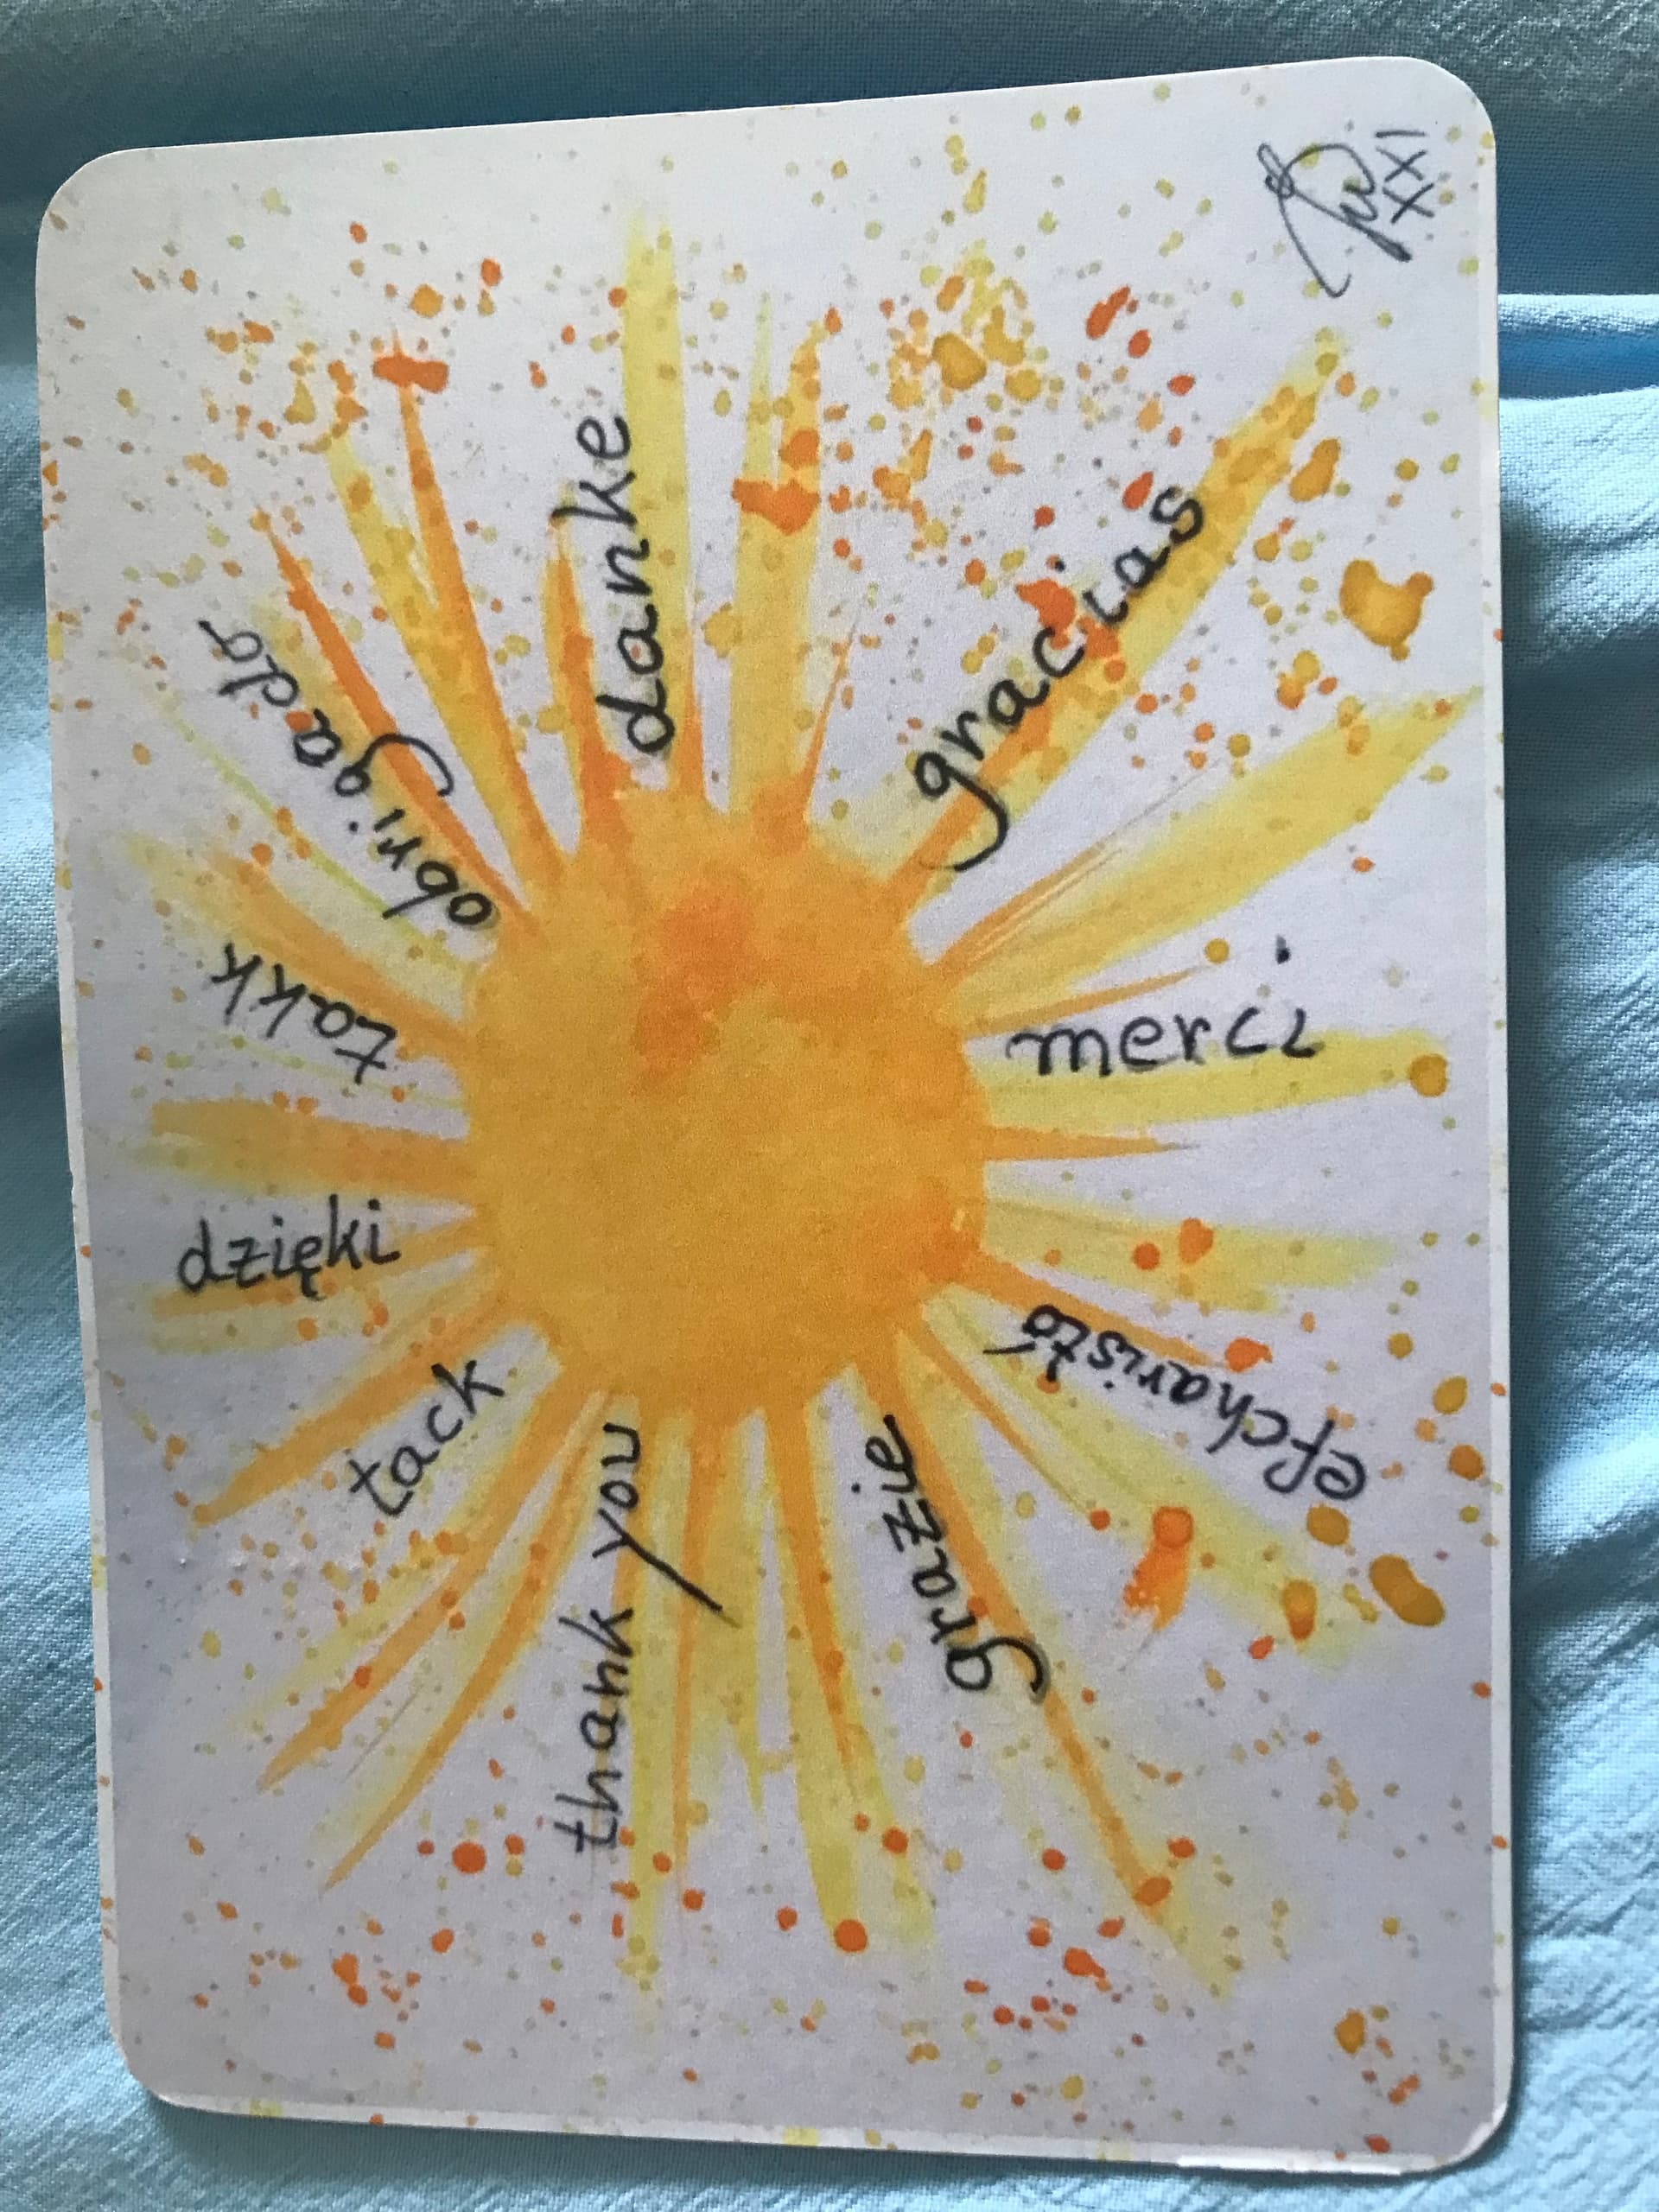 danke
gracias
merci
efcharistó
grazie
thank you
tack
dzięki
takk
obrigado
XXI